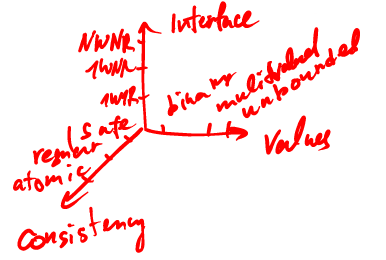 Interface
NWNR
1WNR
1W1R
binary
multivalued
unbounded
Values
safe
regular
atomic
Consistency